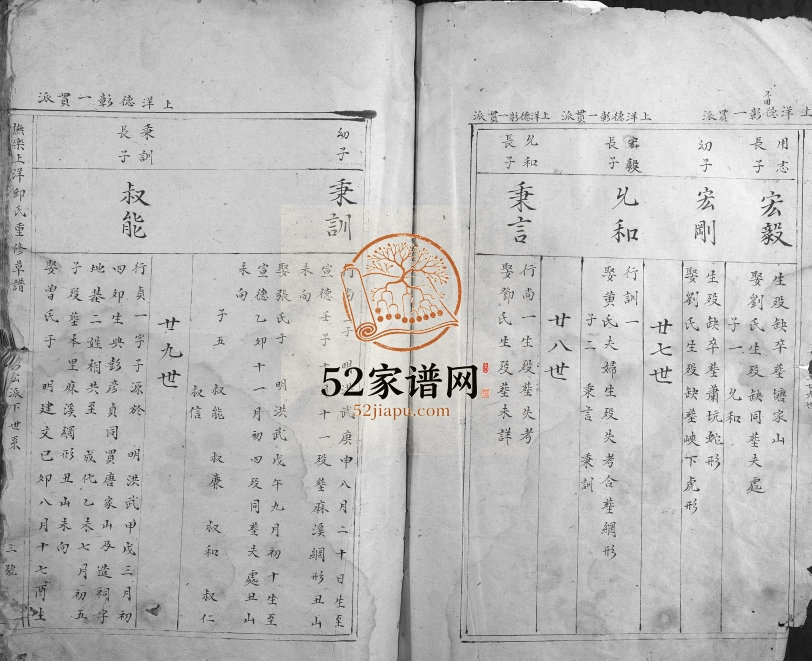 上洋德彰一貫派
上洋德彰一貫派
上洋德彰一貫派
用志
長子
宏毅
生殁缺卒塟塘家山
娶劉氏生殁缺同塟夫處
子一 允和
幼子
宏剛
生殁缺卒塟蕭坑蛇形
娶劉氏生殁缺塟峽下虎形
廿七世
宏毅
長子
允和
行訓一
娶黃氏夫婦生殁失考合塟網形
子二 秉言 秉訓
廿八世
允和
長子
秉言
行尚一生殁塟失考
娶鄧氏生殁塟未詳
上洋德彰一貫派
幼子
秉訓
武庚申八月二十日生至
宣德壬子十一殁塟麻溪網形丑山
未向
娶張氏子 明洪武戊午九月初十生至
宣德乙卯十一月初四殁同塟夫處丑山
未向
子五 叔能 叔廉 叔和 叔仁
叔信
廿九世
秉訓
長子
叔能
行貞一字子源於 明洪武甲戌三月初
四卯生與彭彥貞同買唐家山及造祠宇
地基二姓相共至 成化乙未七月初五
子殁塟本里麻溪網形丑山未向
娶曾氏于 明建文已卯八月十七酉生
樂上洋邱氏重修草譜
公派下世系
三號
52家谱网
52jiapu.com